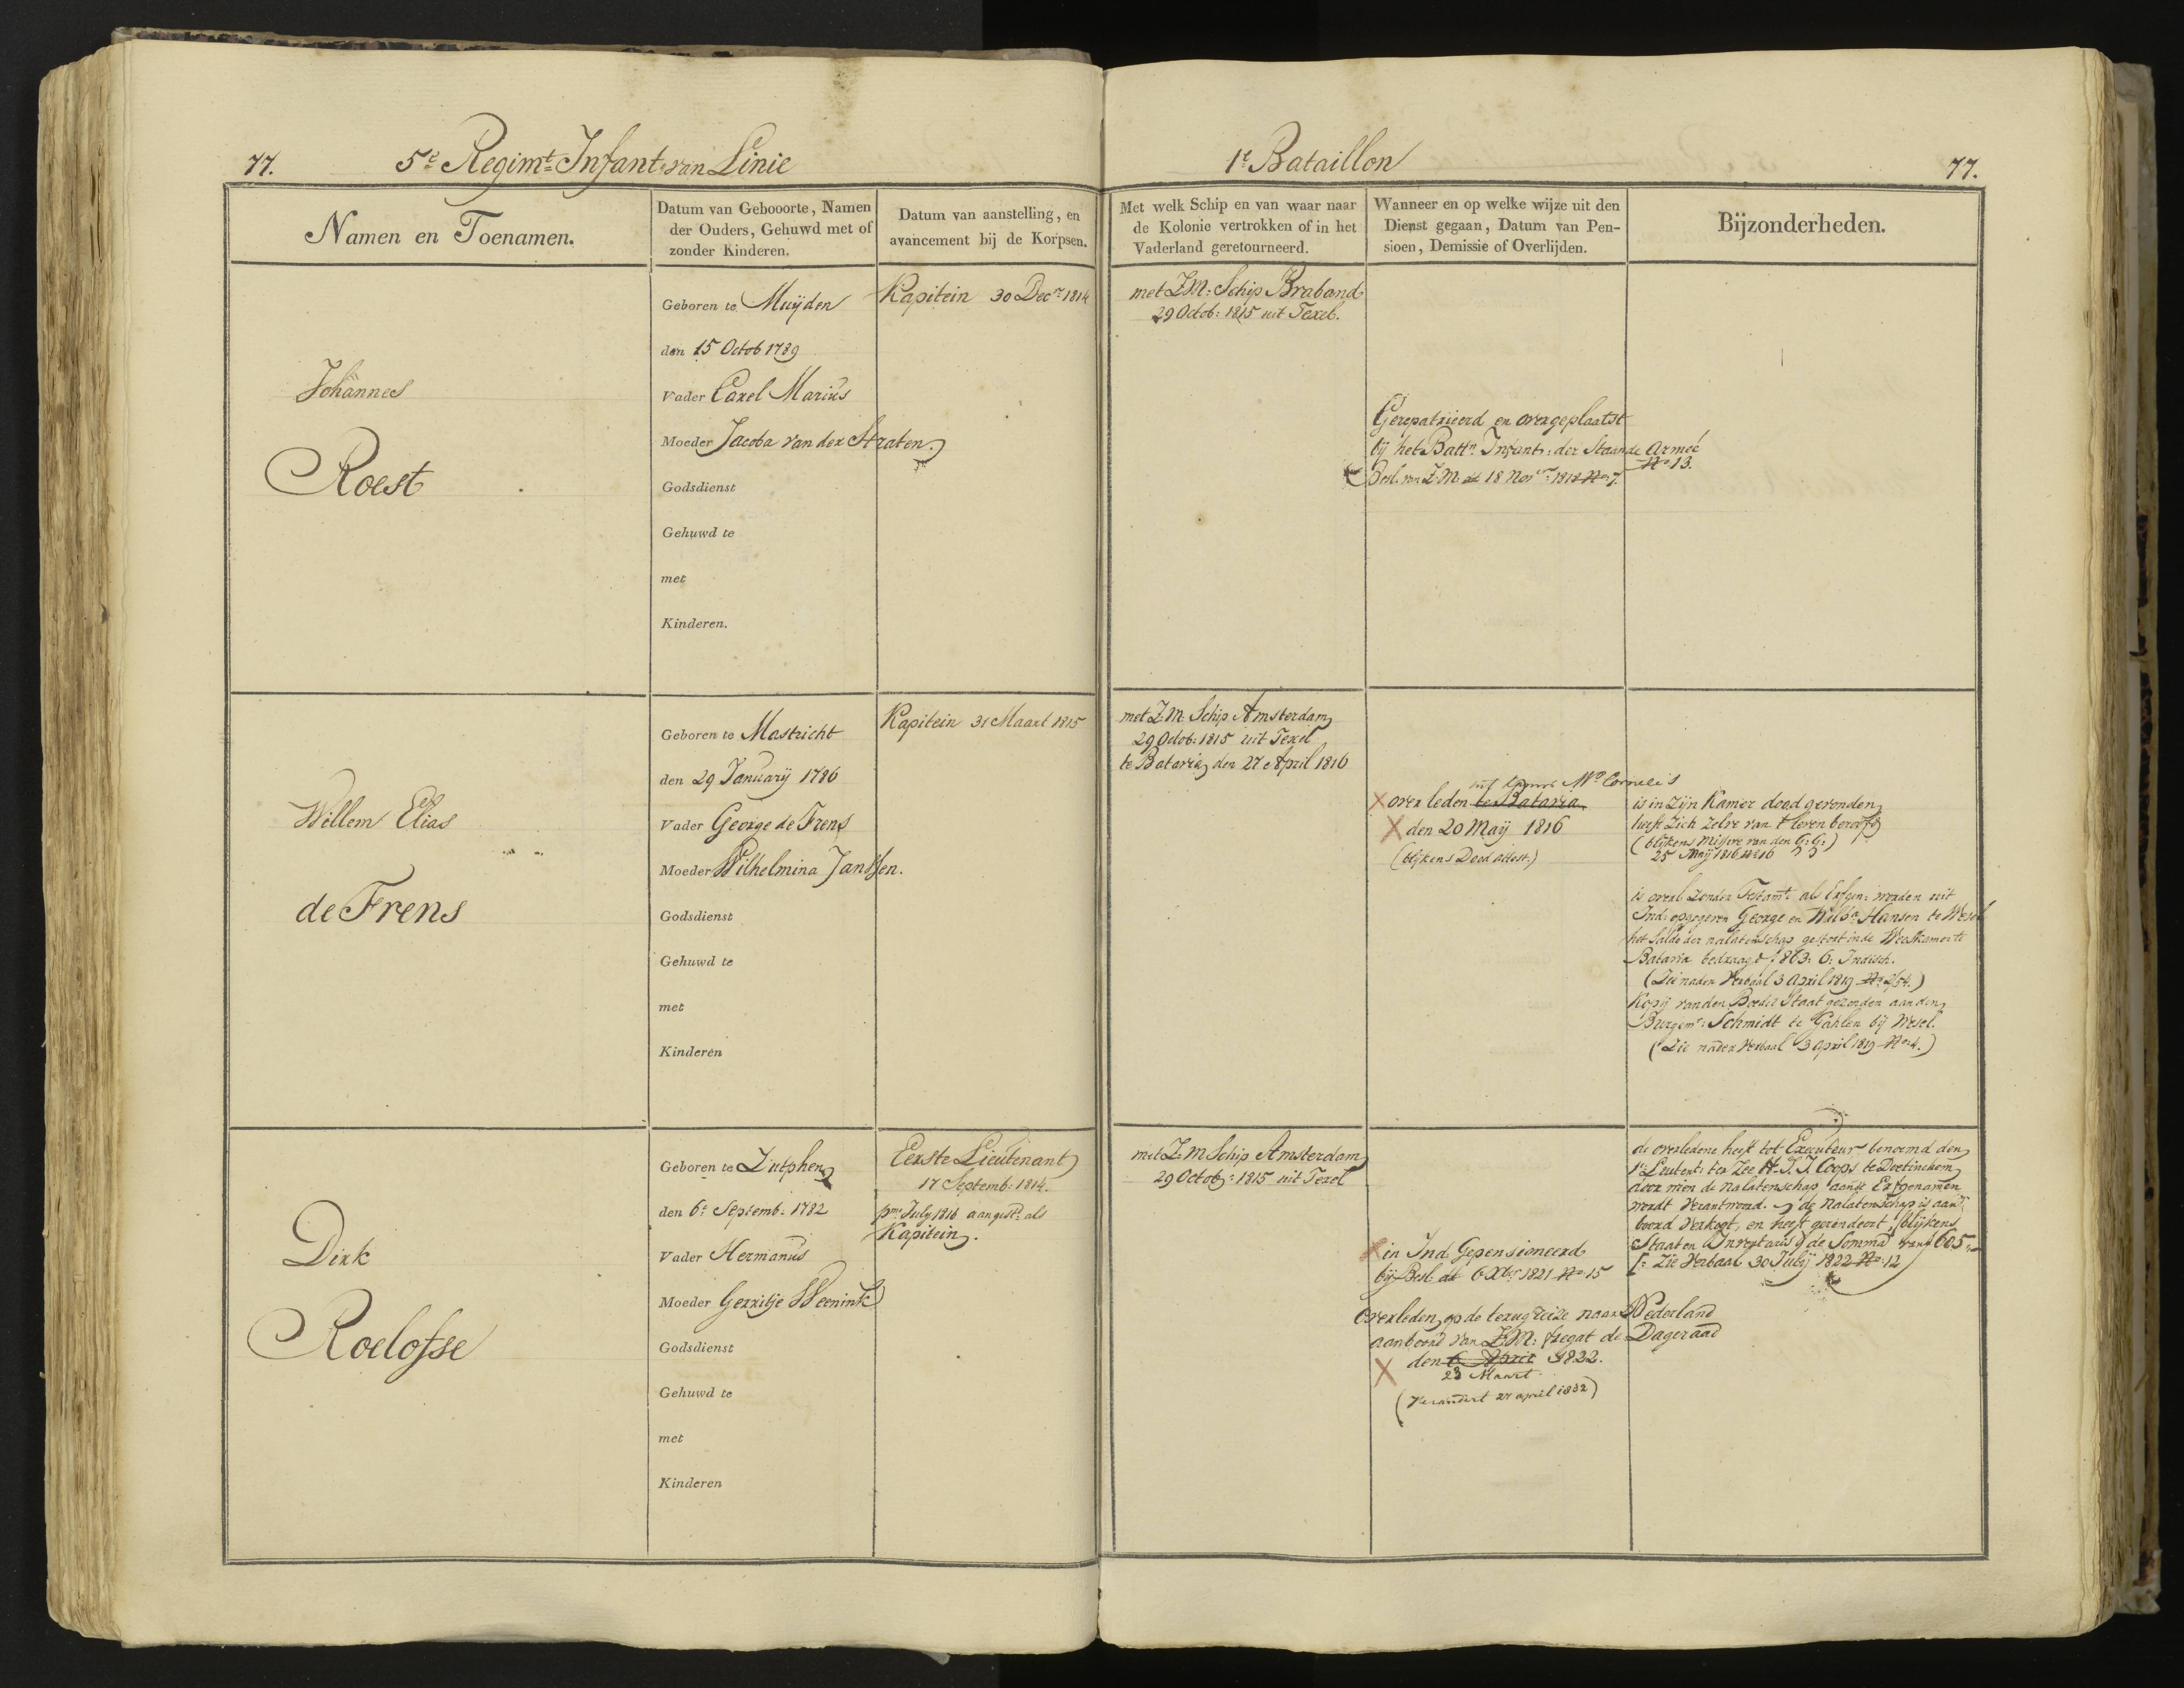 77.
5e Regimt Infant: van Linie
1e Bataillon
77.
Namen en Toenamen.
Datum van Gebooorte, Namen
der Ouders, Gehuwd met of
zonder Kinderen.
Datum van aanstelling, en
avancement bij de Korpsen.
Met welk Schip en van waar naar
de Kolonie vertrokken of in het
Vaderland geretourneerd.
Wanneer en op welke wijze uit den
Dienst gegaan, Datum van Pen-
sioen, Demissie of Overlijden.
Bijzonderheden.
Johannes
Roest
Geboren te Muijden
den 15 Octob 1789
Vader Carel Marius
Moeder Jacoba van der Straten
Godsdienst
Gehuwd te
met
Kinderen.
Kapitein 30 Decr 1814
met Z.M: Schip Braband
29 Octob: 1815 uit Texel.
Gerepatrieerd en overgeplaatst
bij het Battn Infant: der Staande Armeé
No 13.
Besl. van Z.M. dd 18 Novr 1818 No 7.
Willem Elias
de Frens
Geboren te Mastricht
den 29 Januarij 1786
Vader George de Frens
Moeder Wilhelmina Janssen.
Godsdienst
Gehuwd te
met
Kinderen
Kapitein 31 Maart 1815
met Z.M. Schip Amsterdam
29 Octob: 1815 uit Texel
te Batavia den 27 April 1816
Mr Cornelis
overleden te Batavia
den 20 Maij 1816
(blijkens Dood attest:)
is in Zijn Kamer dood gevonden
heeft Zich zelve van 't leven beroofd
(blijkens Missive van den G: G:)
25 Maij 1816 No 16
is overl. zonder Testamt: als Erfgen: worden uit
Ind: opgegeven George en Wilha Hansen te Wesel
het Saldo der nalatenschap gestort in de Weeskamer te
Batavia bedraagt f 863: 6: Indisch.
(Zie nader Verbaal 3 April 1819 No 2/54.)
Kopij van den Boedel Staat gezonden aan den
Burgemr: Schmidt te Gahlen bij Wesel.
(Zie nader Verbaal 3 April 1819 No 4.)
Dirk
Roelofsse
Geboren te Zutphen
den 6e Septemb: 1782
Vader Hermanus
Moeder Gerritje Weenink
Godsdienst
Gehuwd te
met
Kinderen
Eerste Lieutenant
17 Septemb: 1814.
pmo July 1818 aangestd als
Kapitein.
met Z.M Schip Amsterdam
29 Octob: 1815 uit Texel
in Ind. Gepensioneerd
bij Besl. dd 6 Xbr 1821 No 15
Overleden op de terugreize naar Nederland
aan boord van Z.M: fregat de Dageraad
den 6 April 1822.
23 Maart
(Verandert 27 april 1832)
de overledene heeft tot Executeur benoemd den
1e Leutent: ter Zee H. J. J. Coops te Doetinchem
door wien de nalatenschap aan de Erfgenamen
wordt Verantwoord. de nalatenschap is aan
boord Verkogt, en heeft gerendeert, blijkens
Staat en Inventaris de Somma van f 605
Zie Verbaal 30 Julij 1822 No 12